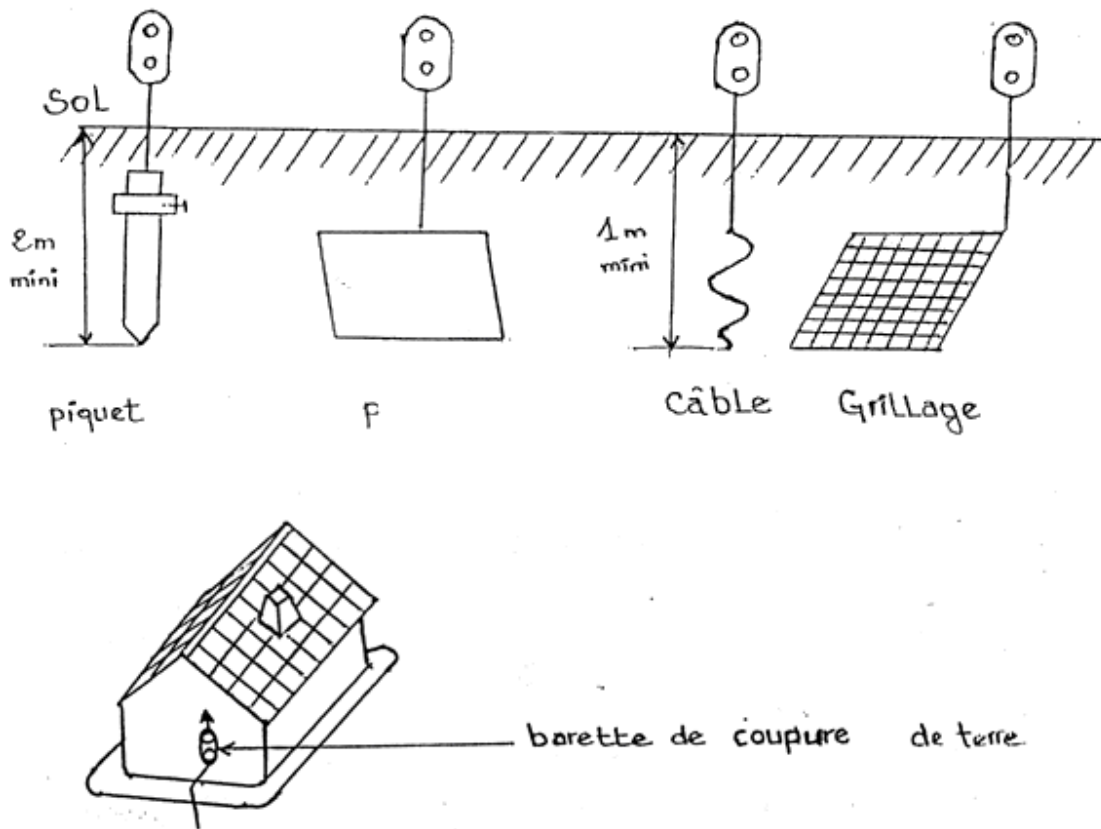 SOL
2m
mini
1m
mini
piquet
P
Câble
Grillage
barette de coupure de terre